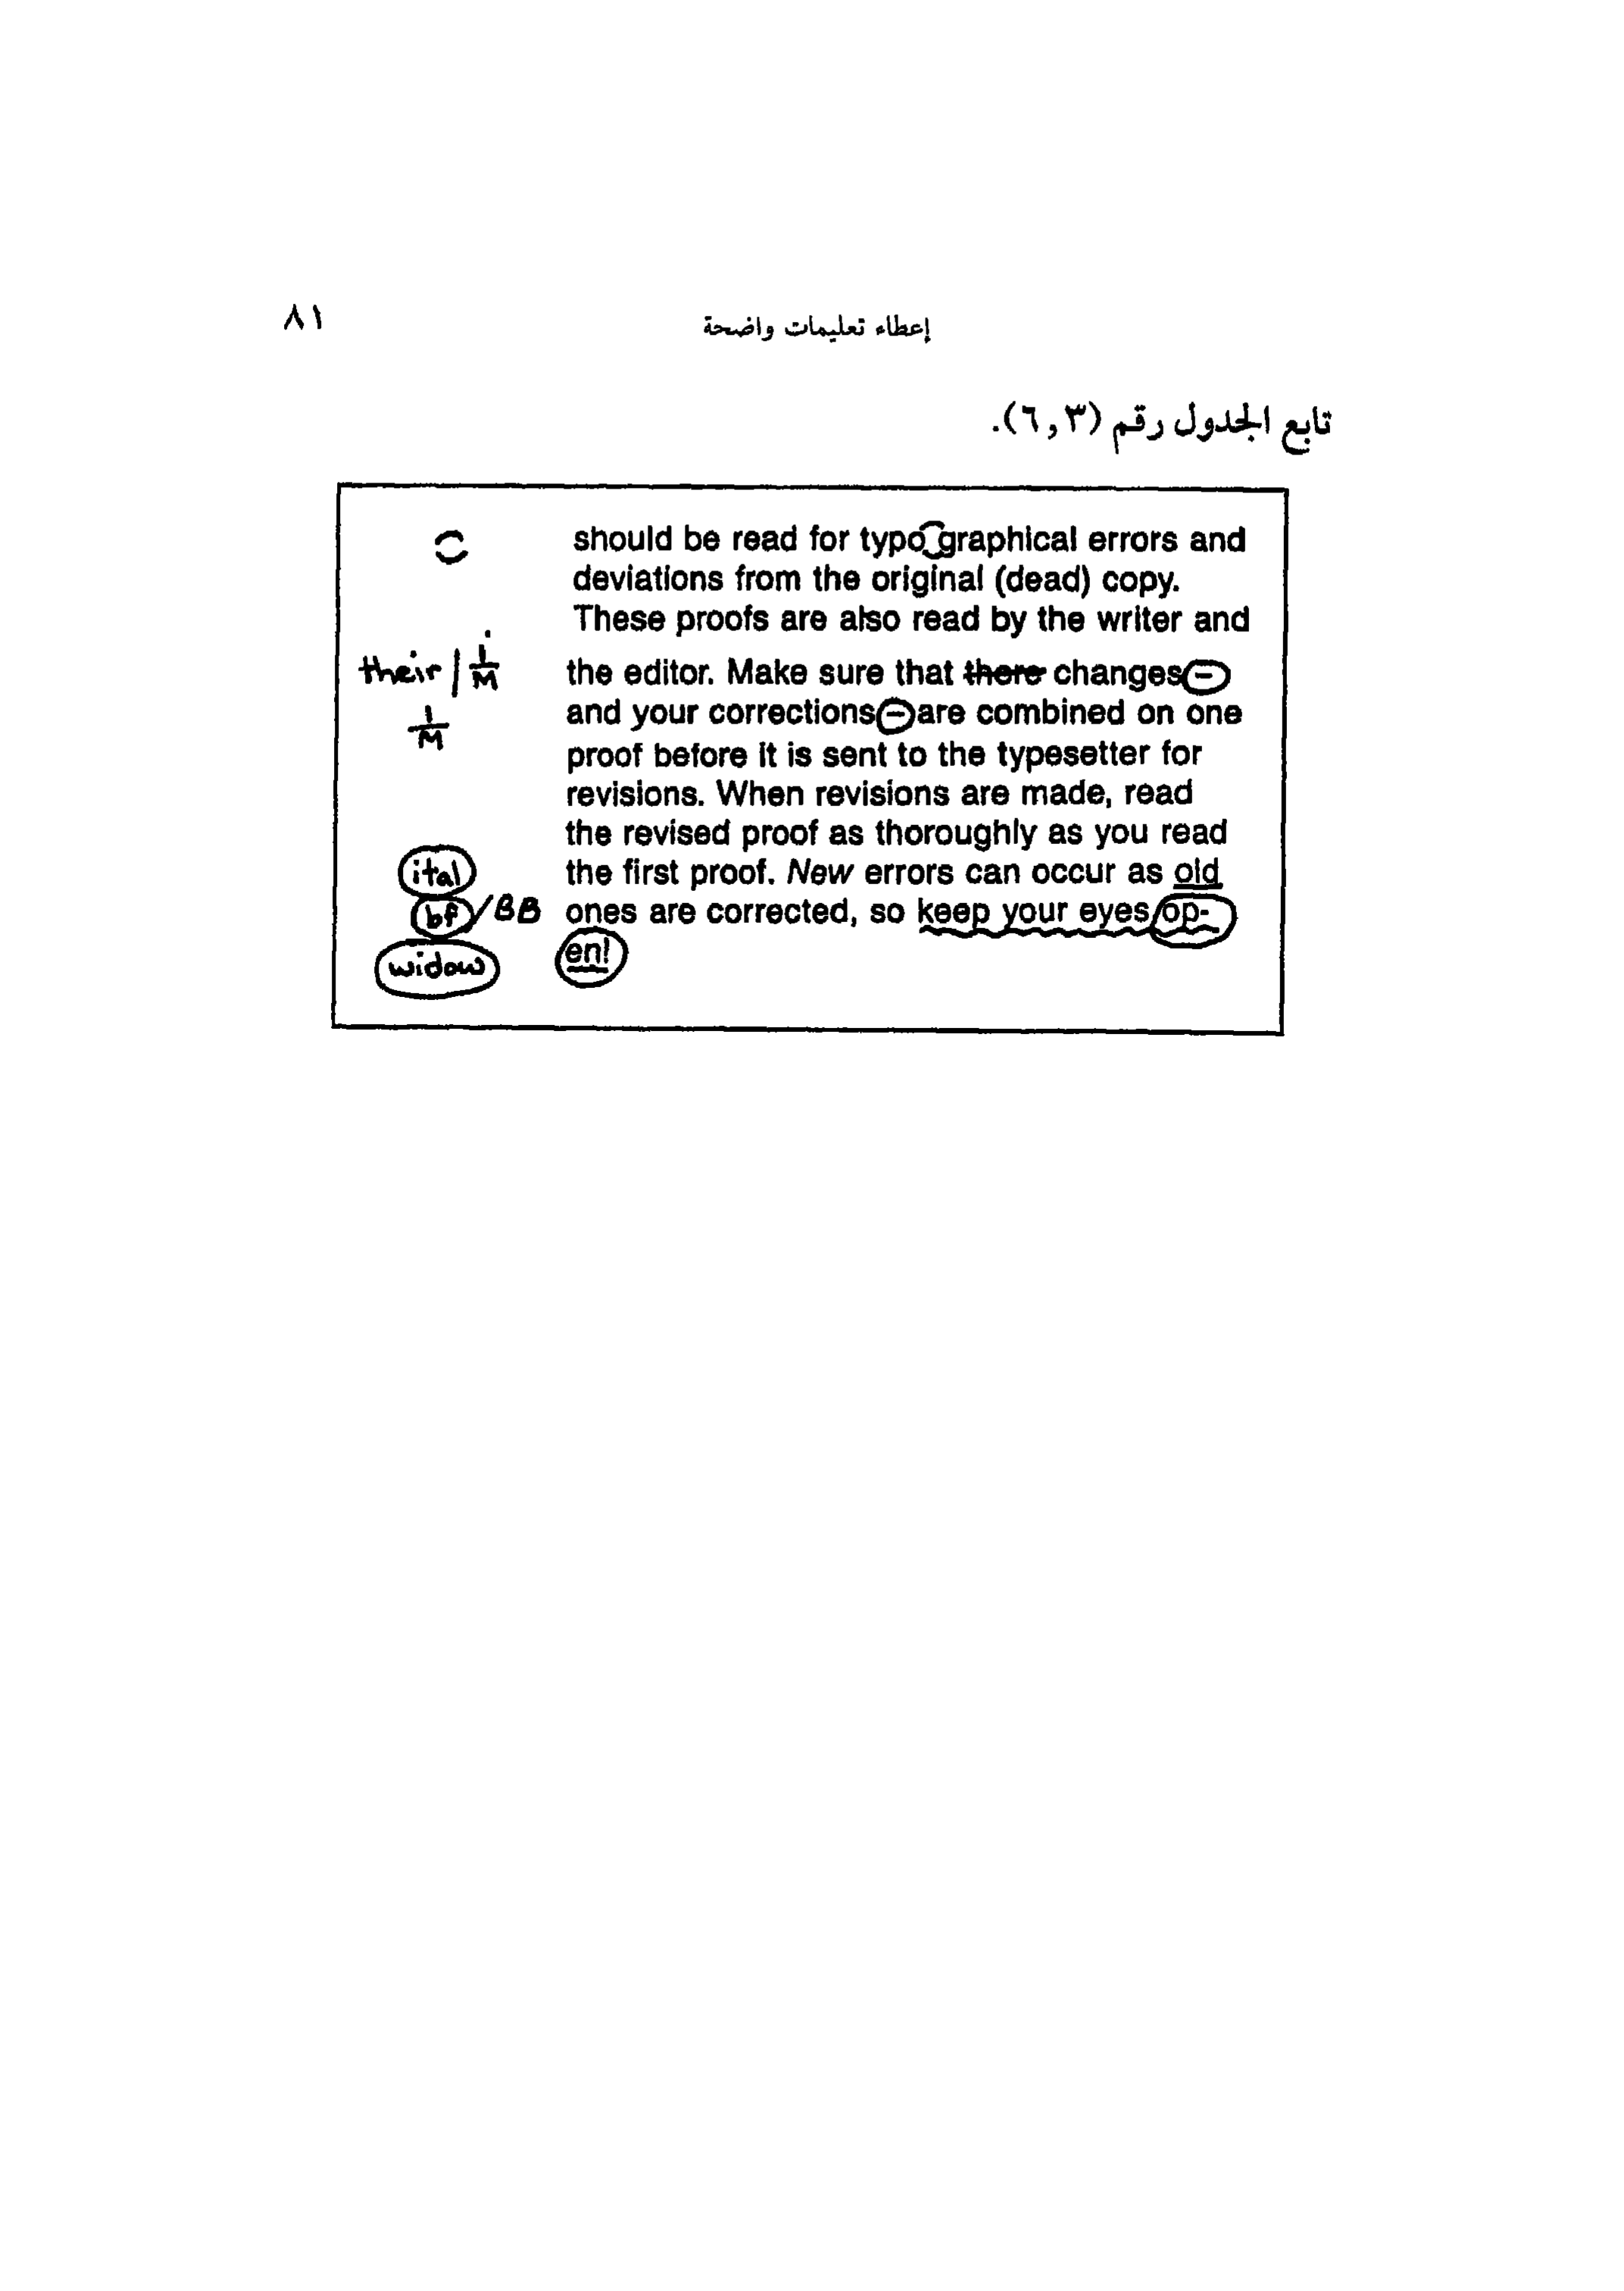 إعطاء تعليمات واضحة ٨١
تابع الجدول رقم (٦,٣).
should be read for typo graphical errors and
deviations from the original (dead) copy.
These proofs are also read by the writer and
their / 1/M the editor. Make sure that there changes -
1/M and your corrections - are combined on one
proof before it is sent to the typesetter for
revisions. When revisions are made, read
the revised proof as thoroughly as you read
ital the first proof. New errors can occur as old
bf / BB ones are corrected, so keep your eyes op-
widow en!